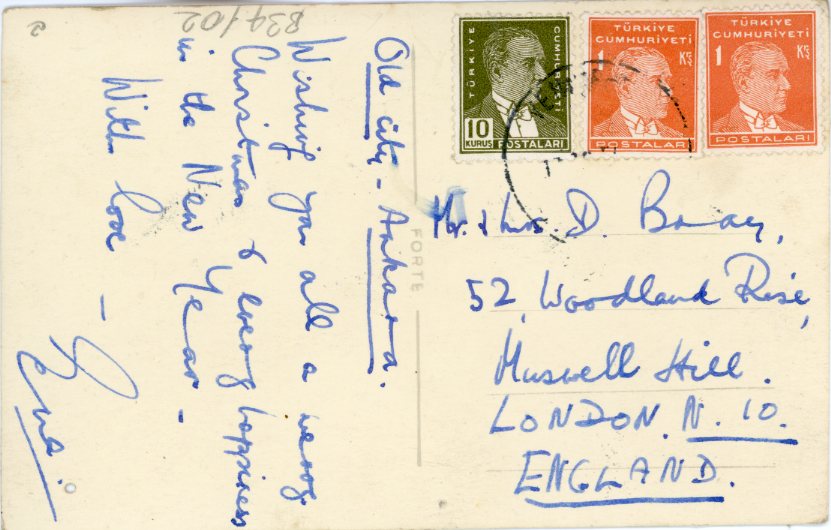 834/02
Old City - Ankara.
Wishing you all a merry
Christmas & every happiness
in the New Year -
With love -
TÜRKİYE
CUMHURİYETİ
10
KURUŞ
POSTALARI
TÜRKİYE
CUMHURİYETİ
1 KRŞ
POSTALARI
TÜRKİYE
CUMHURİYETİ
1 KRŞ
POSTALARI
FORTE
Mr. & Mrs. D. Bray,
52, Woodland Rise,
Muswell Hill.
LONDON. N. 10.
ENGLAND.